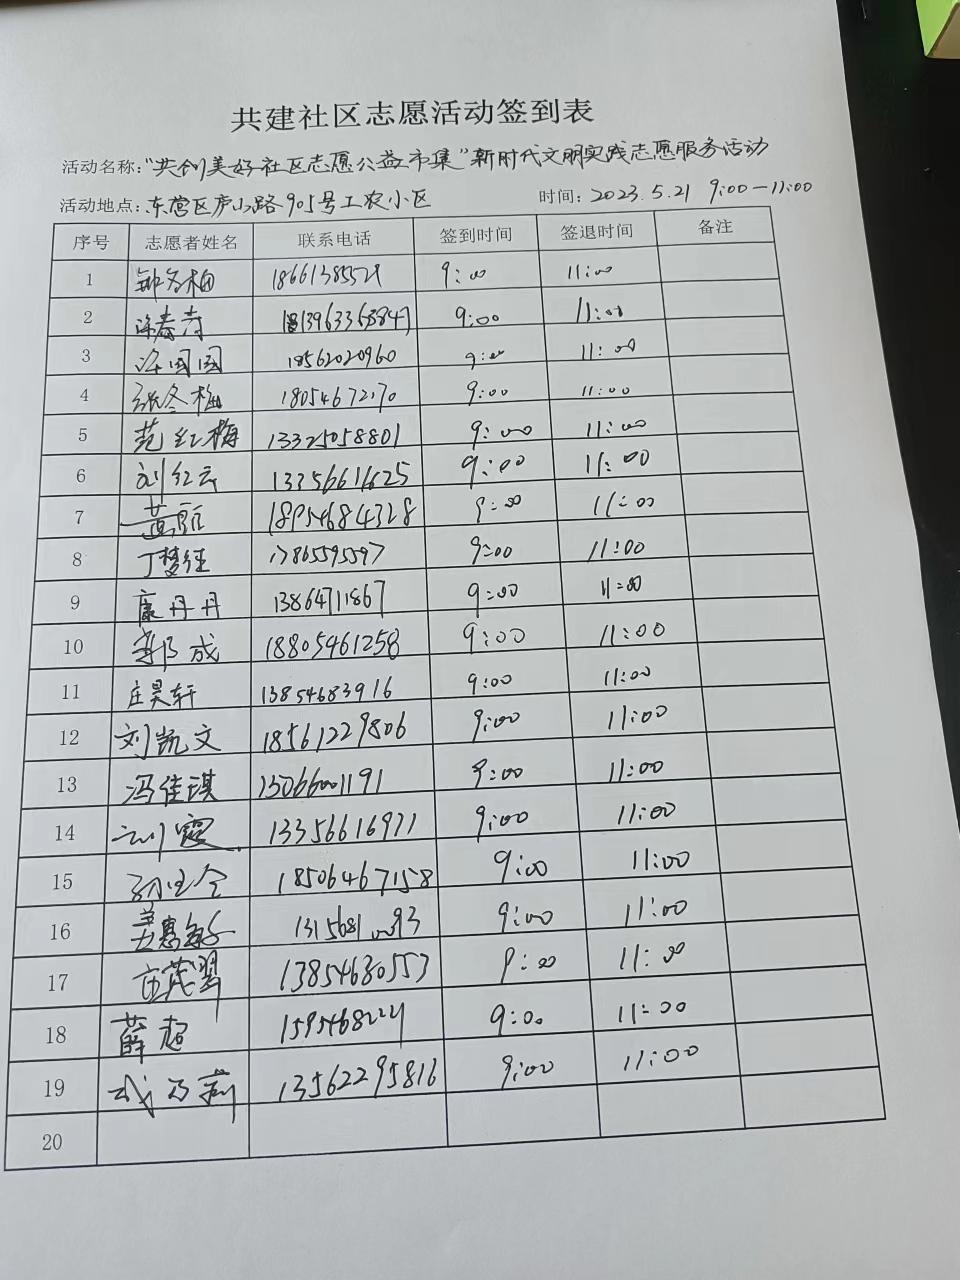 共建社区志愿活动签到表
活动名称："共创美好社区志愿公益市集"新时代文明实践志愿服务活动
活动地点：东营区庐山路905号工农小区 时间：2023.5.21 9:00-11:00
序号 志愿者姓名 联系电话 签到时间 签退时间 备注
1 9:00 11:00
2 13963363847 9:00 11:00
3 许园园 18562020960 9:00 11:00
4 张冬梅 9:00 11:00
5 范红梅 13325058801 9:00 11:00
6 刘红云 13356616625 9:00 11:00
7 18954684328 9:00 11:00
8 丁梦经 17865595597 9:00 11:00
9 康丹丹 13864711867 9:00 11:00
10 郭成 18805461258 9:00 11:00
11 庄昊轩 13854683916 9:00 11:00
12 刘凯文 18561229806 9:00 11:00
13 冯佳琪 15066001191 9:00 11:00
14 刘霞 13356616971 9:00 11:00
15 18506467158 9:00 11:00
16 9:00 11:00
17 13854630553 9:00 11:00
18 薛超 9:00 11:00
19 13562295816 9:00 11:00
20